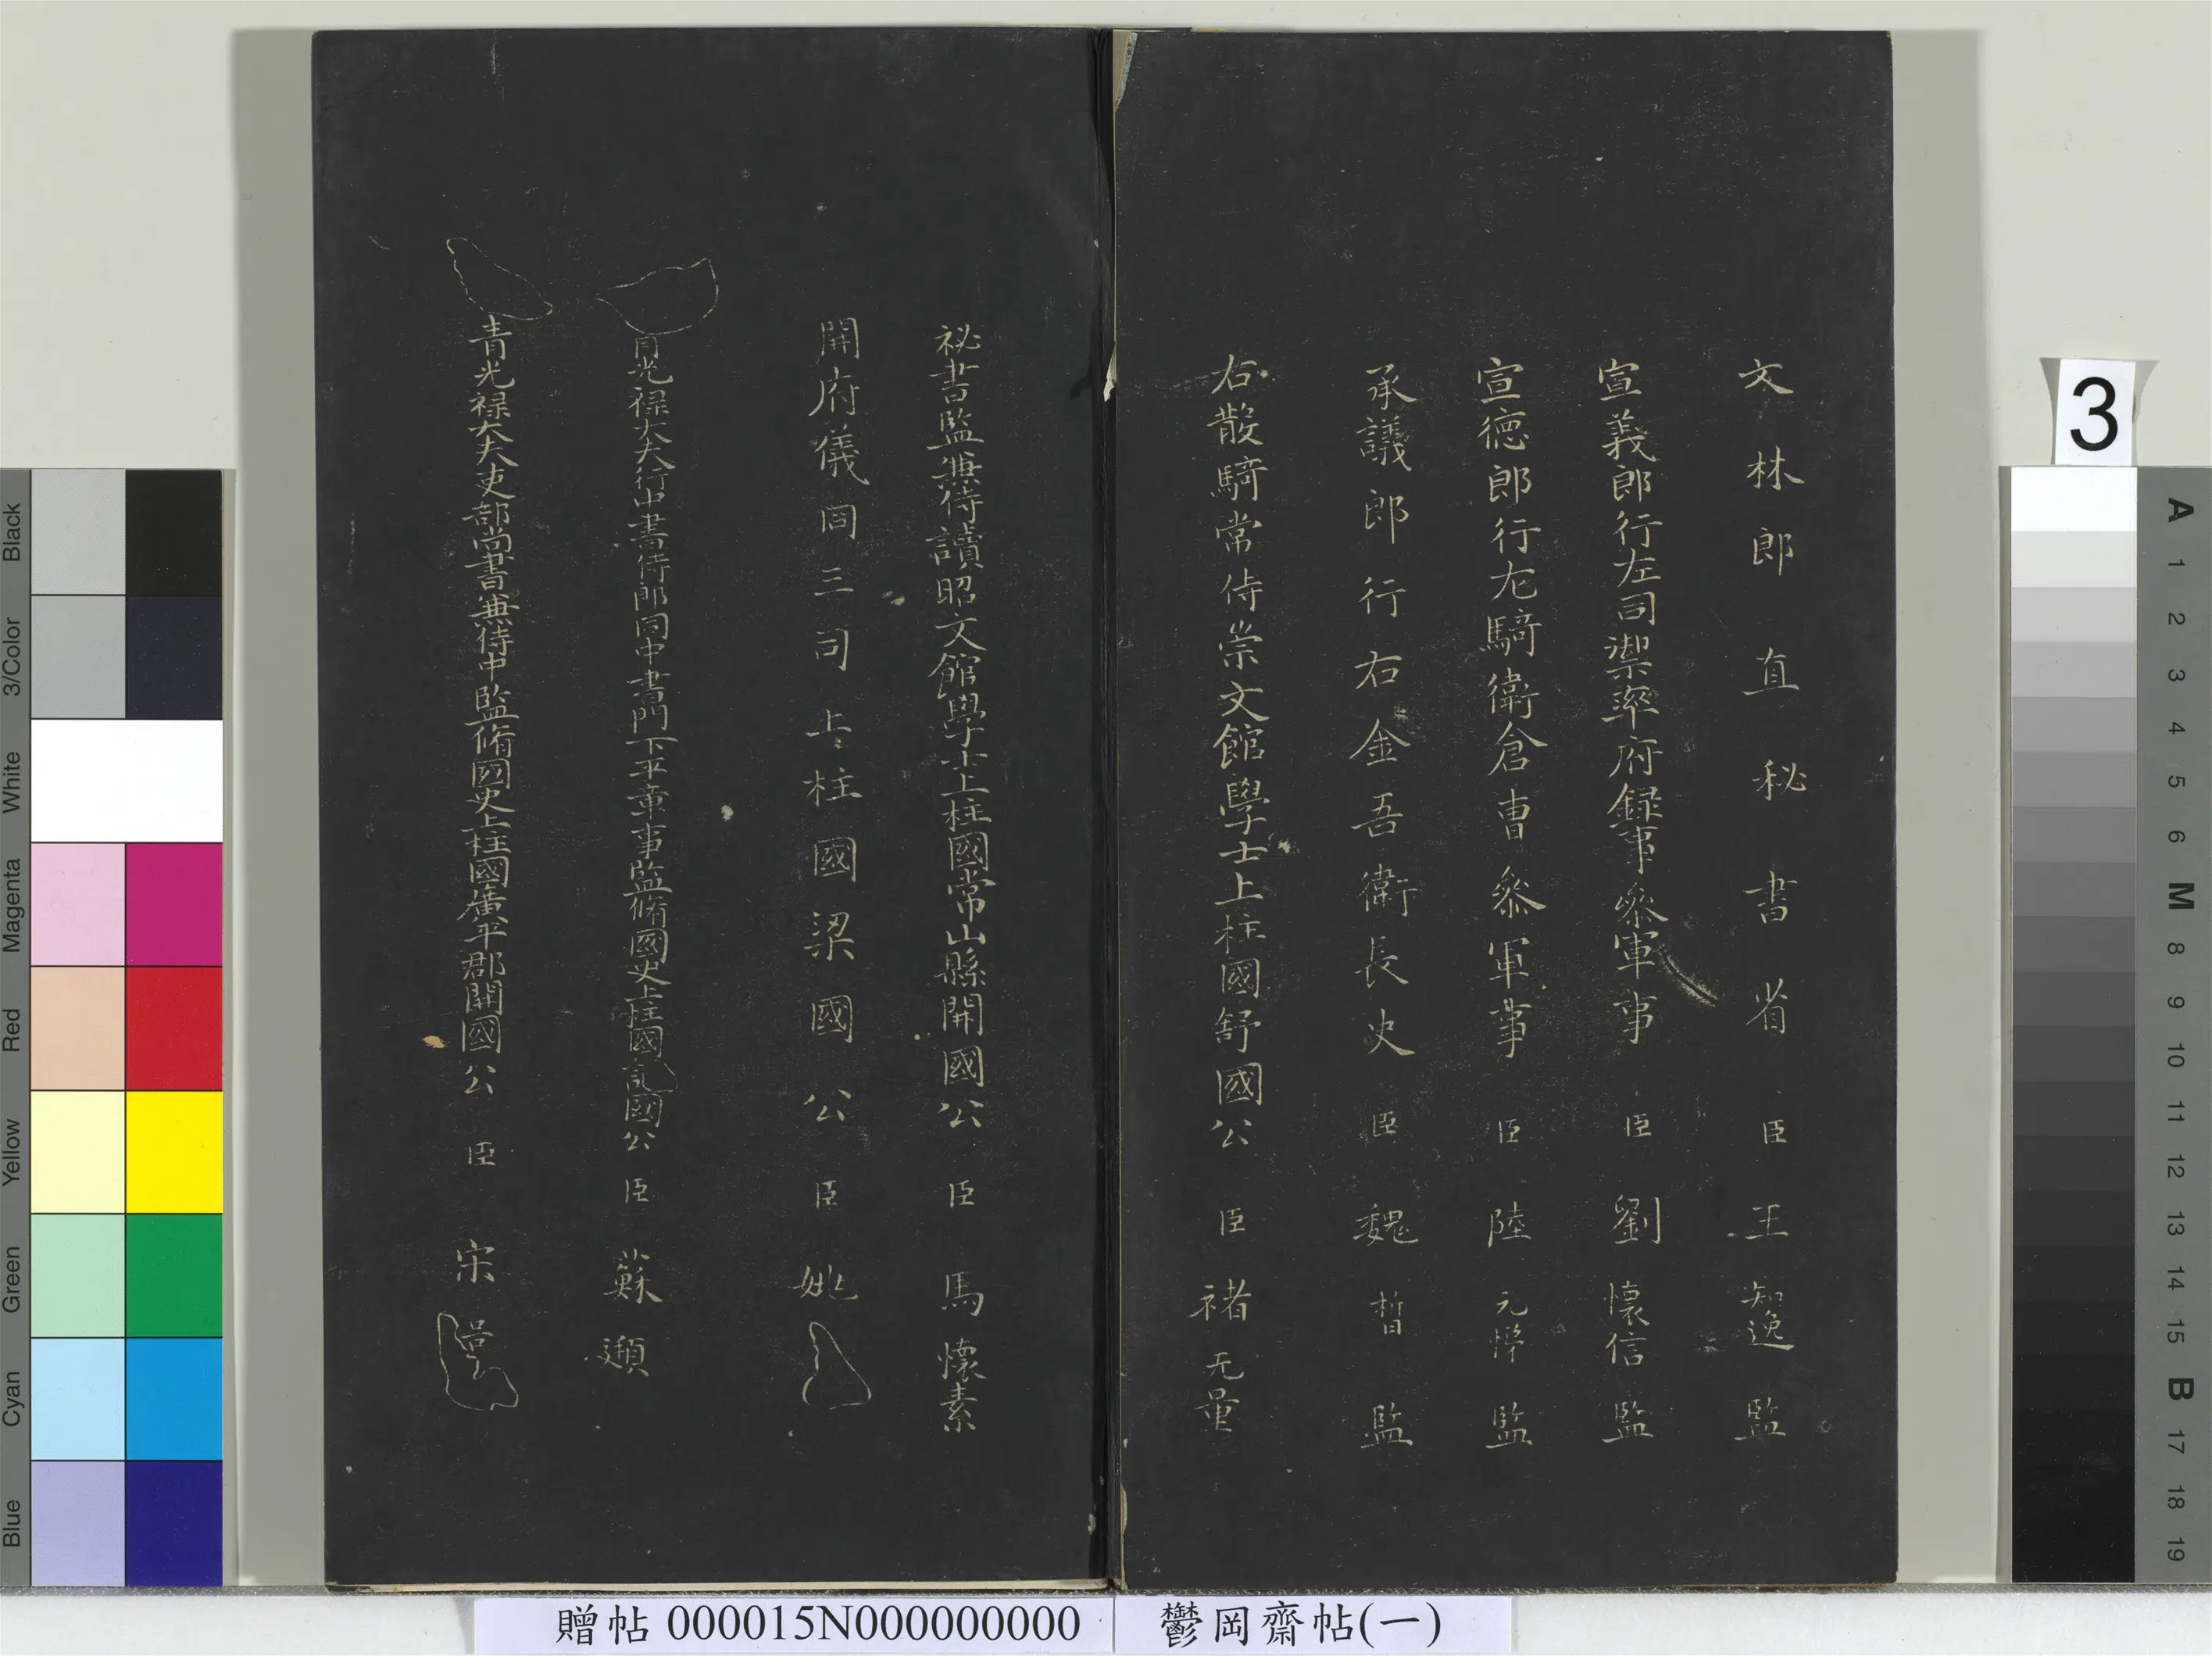 文林郎直秘書省臣王知逸監
宣義郎行左司禦率府録事叅軍事臣劉懷信監
宣德郎行左騎衛倉曹叅軍事臣陸元悌監
承議郎行右金吾衛長史臣魏晢監
右散騎常侍崇文館學士上柱國舒國公臣褚无量
祕書監兼侍讀昭文館學士上柱國常山縣開國公臣馬懷素
開府儀同三司上柱國梁國公臣姚
光禄大夫行中書侍郎同中書門下平章事監脩國史上柱國國公臣蘇頲
青光禄大夫吏部尚書兼侍中監脩國史上柱國廣平郡開國公臣宋
贈帖 000015N000000000
鬱岡齋帖(一)
3
Black
3/Color
White
Magenta
Red
Yellow
Green
Cyan
Blue
A
1
2
3
4
5
6
M
8
9
10
11
12
13
14
15
B
17
18
19